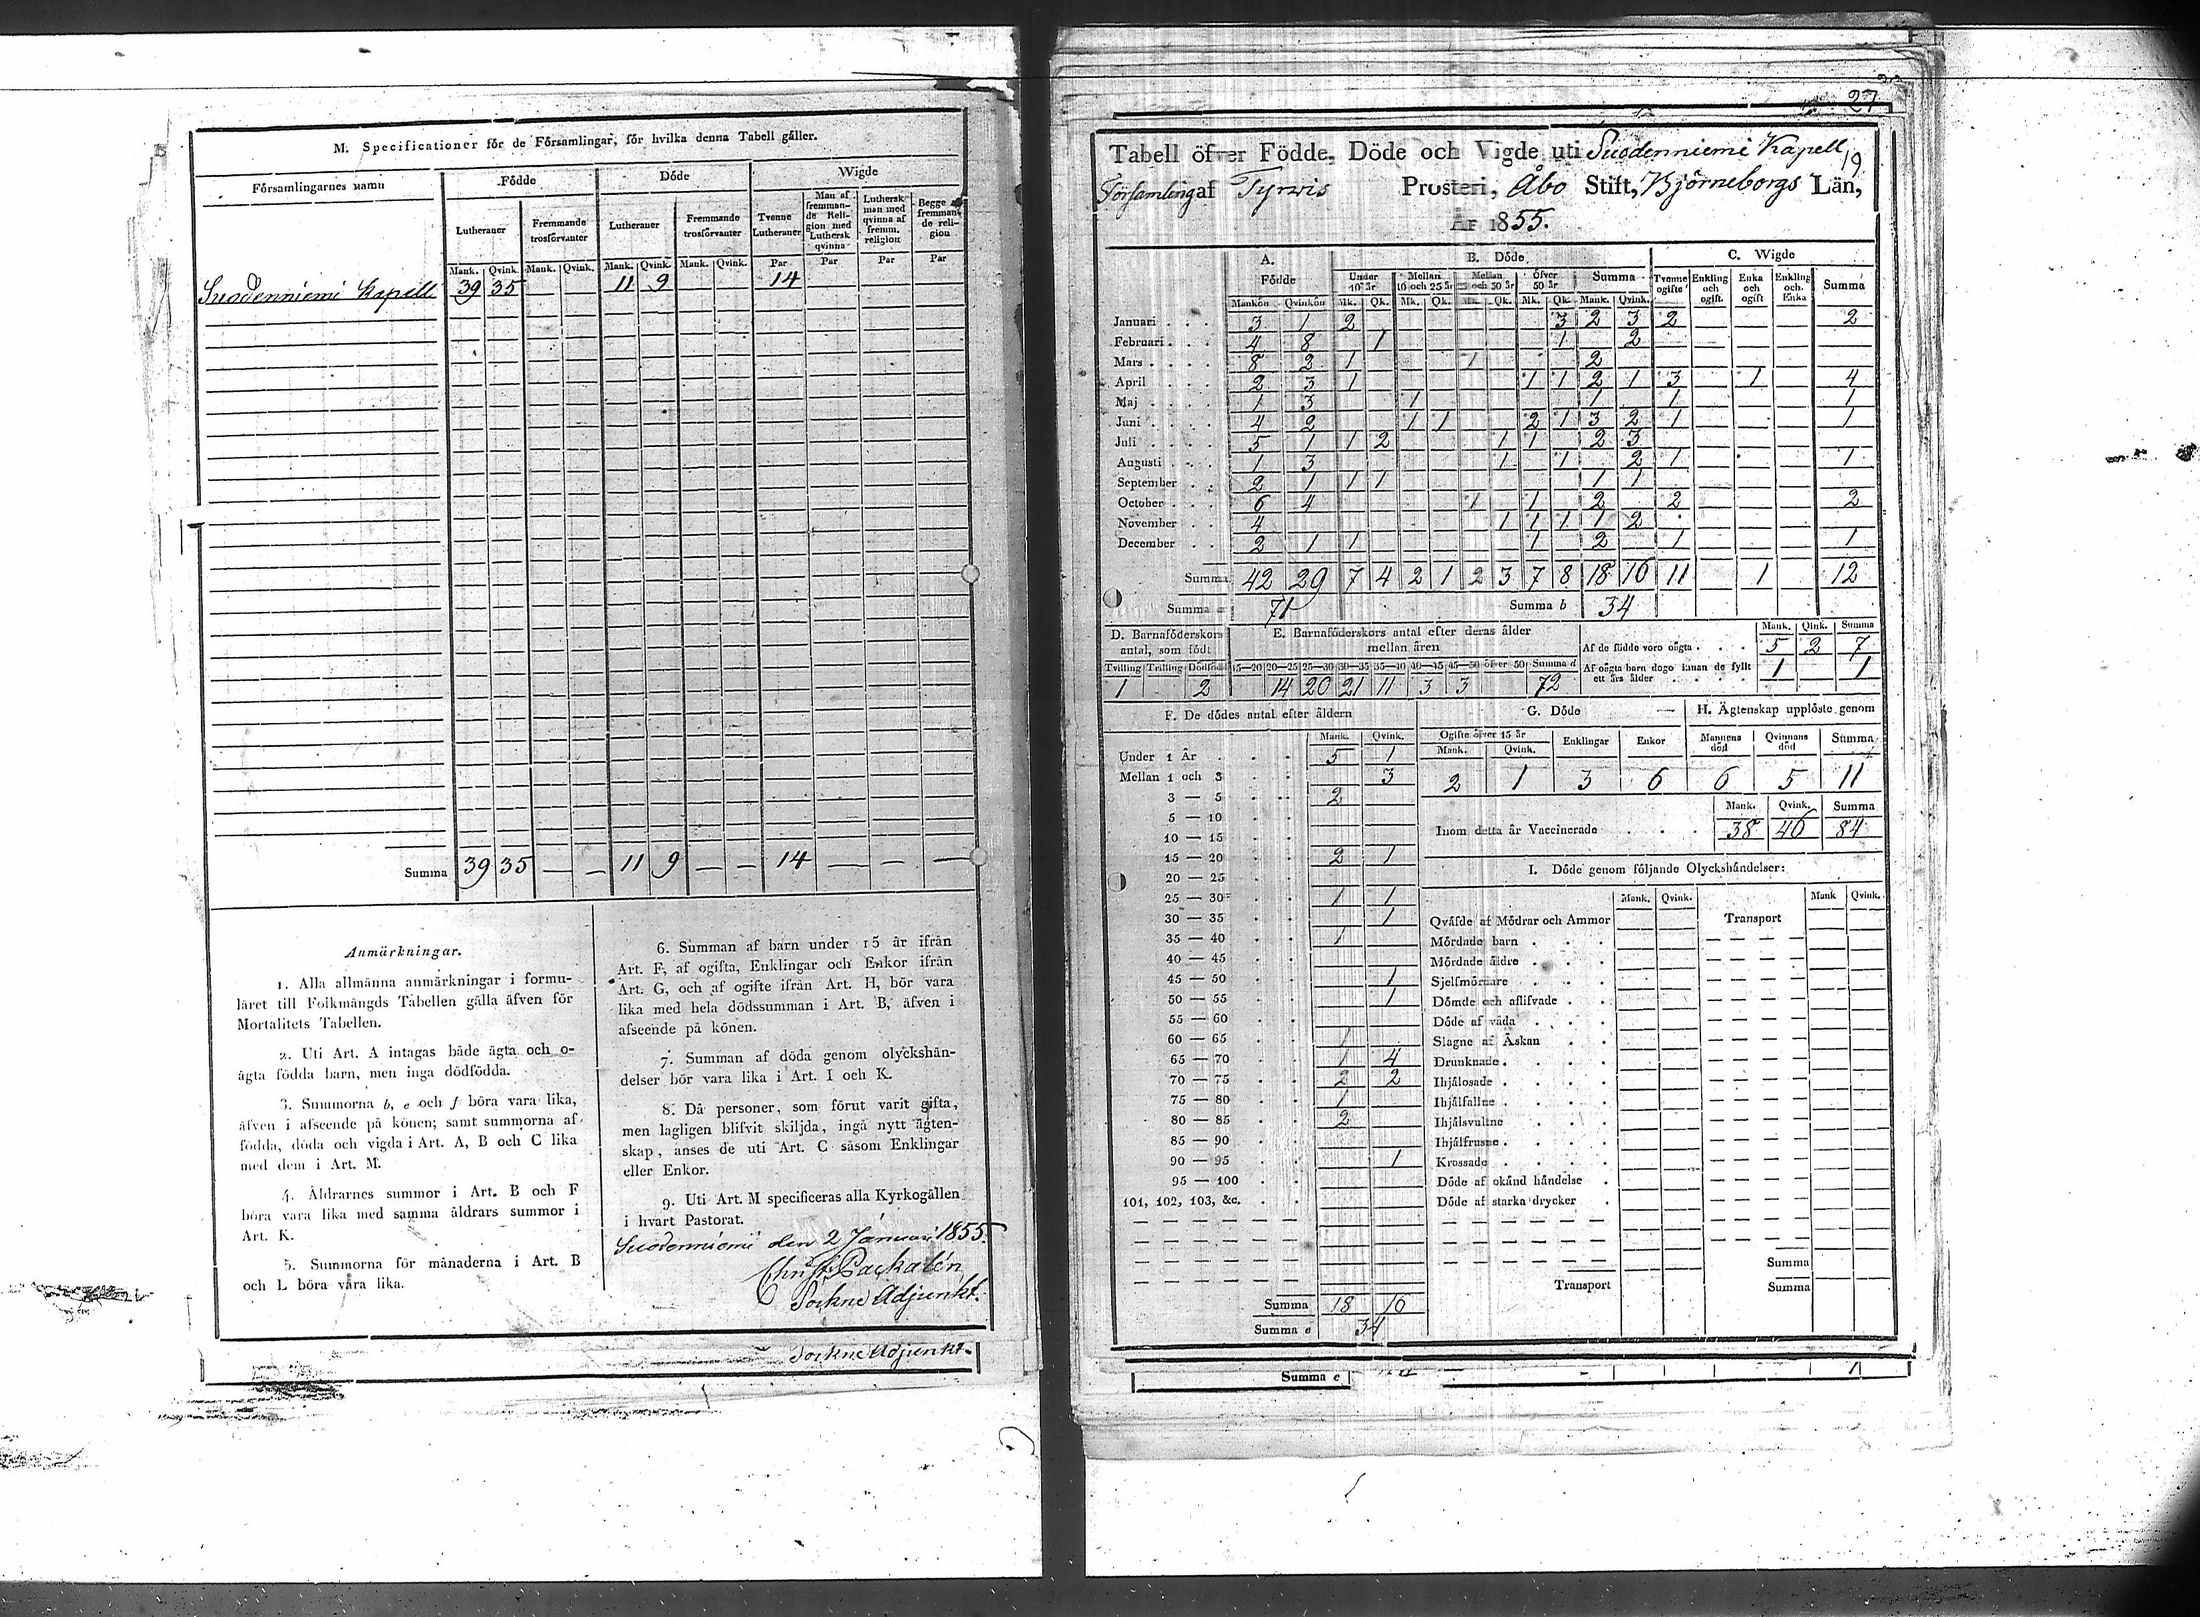 M. Specificationer för de Församlingar, för hvilka denna Tabell gäller.
Församlingarnes namn
Födde
Döde
Wigde
Lutheraner
Fremmande trosförvanter
Lutheraner
Fremmande trosförvanter
Tvenne Lutheraner
Man af fremmande Religion med Luthersk qvinna
Luthersk man med qvinna af fremm. religion
Begge af fremmande religion
Mank. Qvink. Mank. Qvink. Mank. Qvink. Mank. Qvink. Par Par Par Par
Suodenniemi Kapell 39 35 — — 11 9 — — 14
Summa 39 35 — — 11 9 — — 14 — — —
Anmärkningar.
1. Alla allmänna anmärkningar i formu-
läret till Folkmängds Tabellen gälla äfven för
Mortalitets Tabellen.
2. Uti Art. A intagas både ägta och o-
ägta födda barn, men inga dödfödda.
3. Summorna b, e och f böra vara lika,
äfven i afseende på könen; samt summorna af
födda, döda och vigda i Art. A, B och C lika
med dem i Art. M.
4. Åldrarnes summor i Art. B och F
böra vara lika med samma åldrars summor i
Art. K.
5. Summorna för månaderna i Art. B
och L böra vara lika.
6. Summan af barn under 15 år ifrån
Art. F, af ogifta, Enklingar och Enkor ifrån
Art. G, och af ogifte ifrån Art. H, bör vara
lika med hela dödssumman i Art. B, äfven i
afseende på könen.
7. Summan af döda genom olyckshän-
delser bör vara lika i Art. I och K.
8. Då personer, som förut varit gifta,
men lagligen blifvit skiljda, ingå nytt ägten-
skap, anses de uti Art. C såsom Enklingar
eller Enkor.
9. Uti Art. M specificeras alla Kyrkogällen
i hvart Pastorat.
Suodenniemi den 2 Januari 1855.
Christ. Packalén
Sockne Adjunkt.
Sockne Adjunkt.
27
Tabell öfver Födde, Döde och Vigde uti Suodenniemi Kapell
19
Församling af Tyrvis Prosteri, Åbo Stift, Björneborgs Län,
ÅR 1855.
A. Födde
B. Döde
C. Wigde
Under 10 år
Mellan 10 och 25 år
Mellan 25 och 50 år
Öfver 50 år
Summa
Tvenne ogifte
Enkling och ogift
Enka och ogift
Enkling och Enka
Summa
Mankön Qvinkön Mk. Qk. Mk. Qk. Mk. Qk. Mk. Qk. Mank. Qvink.
Januari 3 1 2 3 2 3 2 2
Februari 4 8 1 1 2
Mars 8 2 1 1 2
April 2 3 1 1 1 2 1 3 1 4
Maj 1 3 1 1 1 1
Juni 4 2 1 1 2 1 3 2 1 1
Juli 5 1 1 2 1 1 2 3
Augusti 1 3 1 1 2 1 1
September 2 1 1 1 1 1
October 6 4 1 1 2 2 2
November 4 1 1 1 1 2
December 2 1 1 1 2 1 1
Summa 42 29 7 4 2 1 2 3 7 8 18 16 11 1 12
Summa a 71 Summa b 34
D. Barnaföderskors antal, som födt
Tvilling Trilling Dödfödt
1 2
E. Barnaföderskors antal efter deras ålder mellan åren
15—20 20—25 25—30 30—35 35—40 40—45 45—50 öfver 50 Summa d
14 20 21 11 3 3 72
Mank. Qvink. Summa
Af de födde voro oägta 5 2 7
Af oägta barn dogo innan de fyllt ett års ålder 1 1
F. De dödes antal efter åldern
Mank. Qvink.
Under 1 År 5 1
Mellan 1 och 3 3
3 — 5 2
5 — 10
10 — 15
15 — 20 2 1
20 — 25
25 — 30 1 1
30 — 35 1
35 — 40 1
40 — 45
45 — 50 1
50 — 55 1
55 — 60
60 — 65 1
65 — 70 1 4
70 — 75 2 2
75 — 80 1
80 — 85 2
85 — 90
90 — 95 1
95 — 100
101, 102, 103, &c.
Summa 18 16
Summa e 34
G. Döde
Ogifte öfver 15 år
Mank. Qvink. Enklingar Enkor
2 1 3 6
H. Ägtenskap upplöste genom
Mannens död Qvinnans död Summa
6 5 11
Mank. Qvink. Summa
Inom detta år Vaccinerade 38 46 84
I. Döde genom följande Olyckshändelser:
Mank. Qvink. Mank Qvink.
Qväfde af Mödrar och Ammor Transport
Mördade barn
Mördade äldre
Sjelfmördare
Dömde och aflifvade
Döde af våda
Slagne af Åskan
Drunknade
Ihjälosade
Ihjälfallne
Ihjälsvultne
Ihjälfrusne
Krossade
Döde af okänd händelse
Döde af starka drycker
Summa
Transport Summa
Summa e